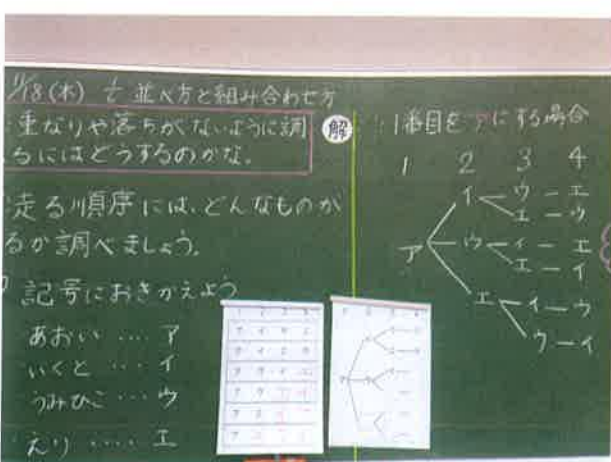 11/18(木) 並べ方と組み合わせ方
重なりや落ちがないように調
るにはどうするのかな。
走る順序には、どんなものが
るか調べましょう。
記号におきかえよう
あおい …. ア
いくと …. イ
うみひこ … ウ
えり ….. エ
解
1番目をアにする場合
1 2 3 4
ア イ ウ エ
エ ウ
ウ イ エ
エ イ
エ イ ウ
ウ イ